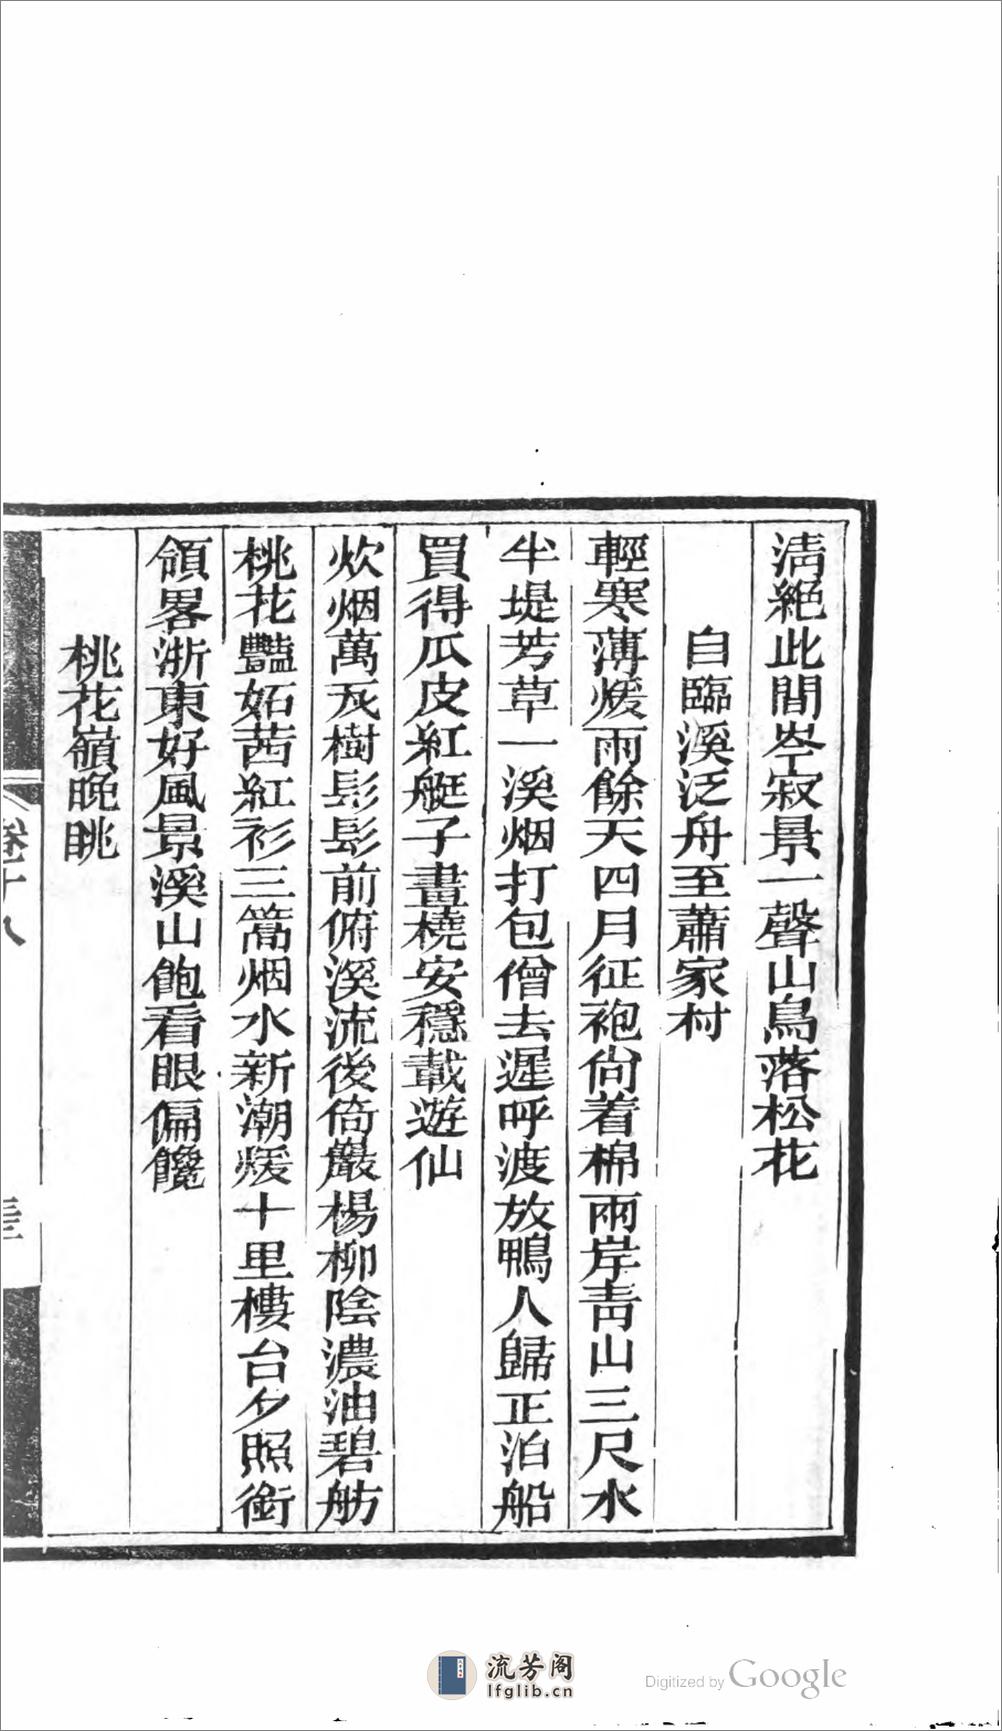 清絕此間岑寂景一聲山鳥落松花
自臨溪泛舟至蕭家村
輕寒薄煖雨餘天四月征袍尙着棉兩岸靑山三尺水
半堤芳草一溪烟打包僧去遲呼渡放鴨人歸正泊船
買得瓜皮紅艇子畫橈安穩載遊仙
炊烟萬灰樹髟髟前俯溪流後倚巖楊柳陰濃油碧舫
桃花豔妬茜紅衫三篙烟水新潮煖十里樓台夕照銜
領畧浙東好風景溪山飽看眼偏饞
桃花嶺晚眺
卷十八
流芳阁
lfglib.cn
Digitized by Google